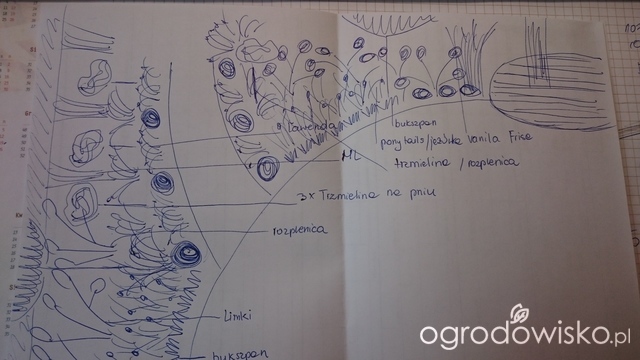 Lawenda
bukszpan
pony tails/jeżówka Vanila Frise
ML
trzmielina / rozplenica
3x Trzmielina na pniu
rozplenica
Limki
bukszpan
ogrodowisko.pl